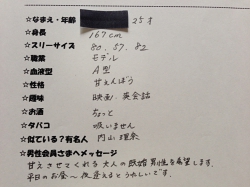 ☆なまえ・年齢 25才
☆身長 167cm
☆スリーサイズ 80. 57. 82
☆職業 モデル
☆血液型 A型
☆性格 甘えんぼう
☆趣味 映画・英会話
☆お酒 ちょっと
☆タバコ 吸いません
☆似ている?有名人 内山理奈
☆男性会員さまへメッセージ
甘えさせてくれる大人の既婚男性を希望します。
平日のお昼〜夜逢えるとうれしいです。